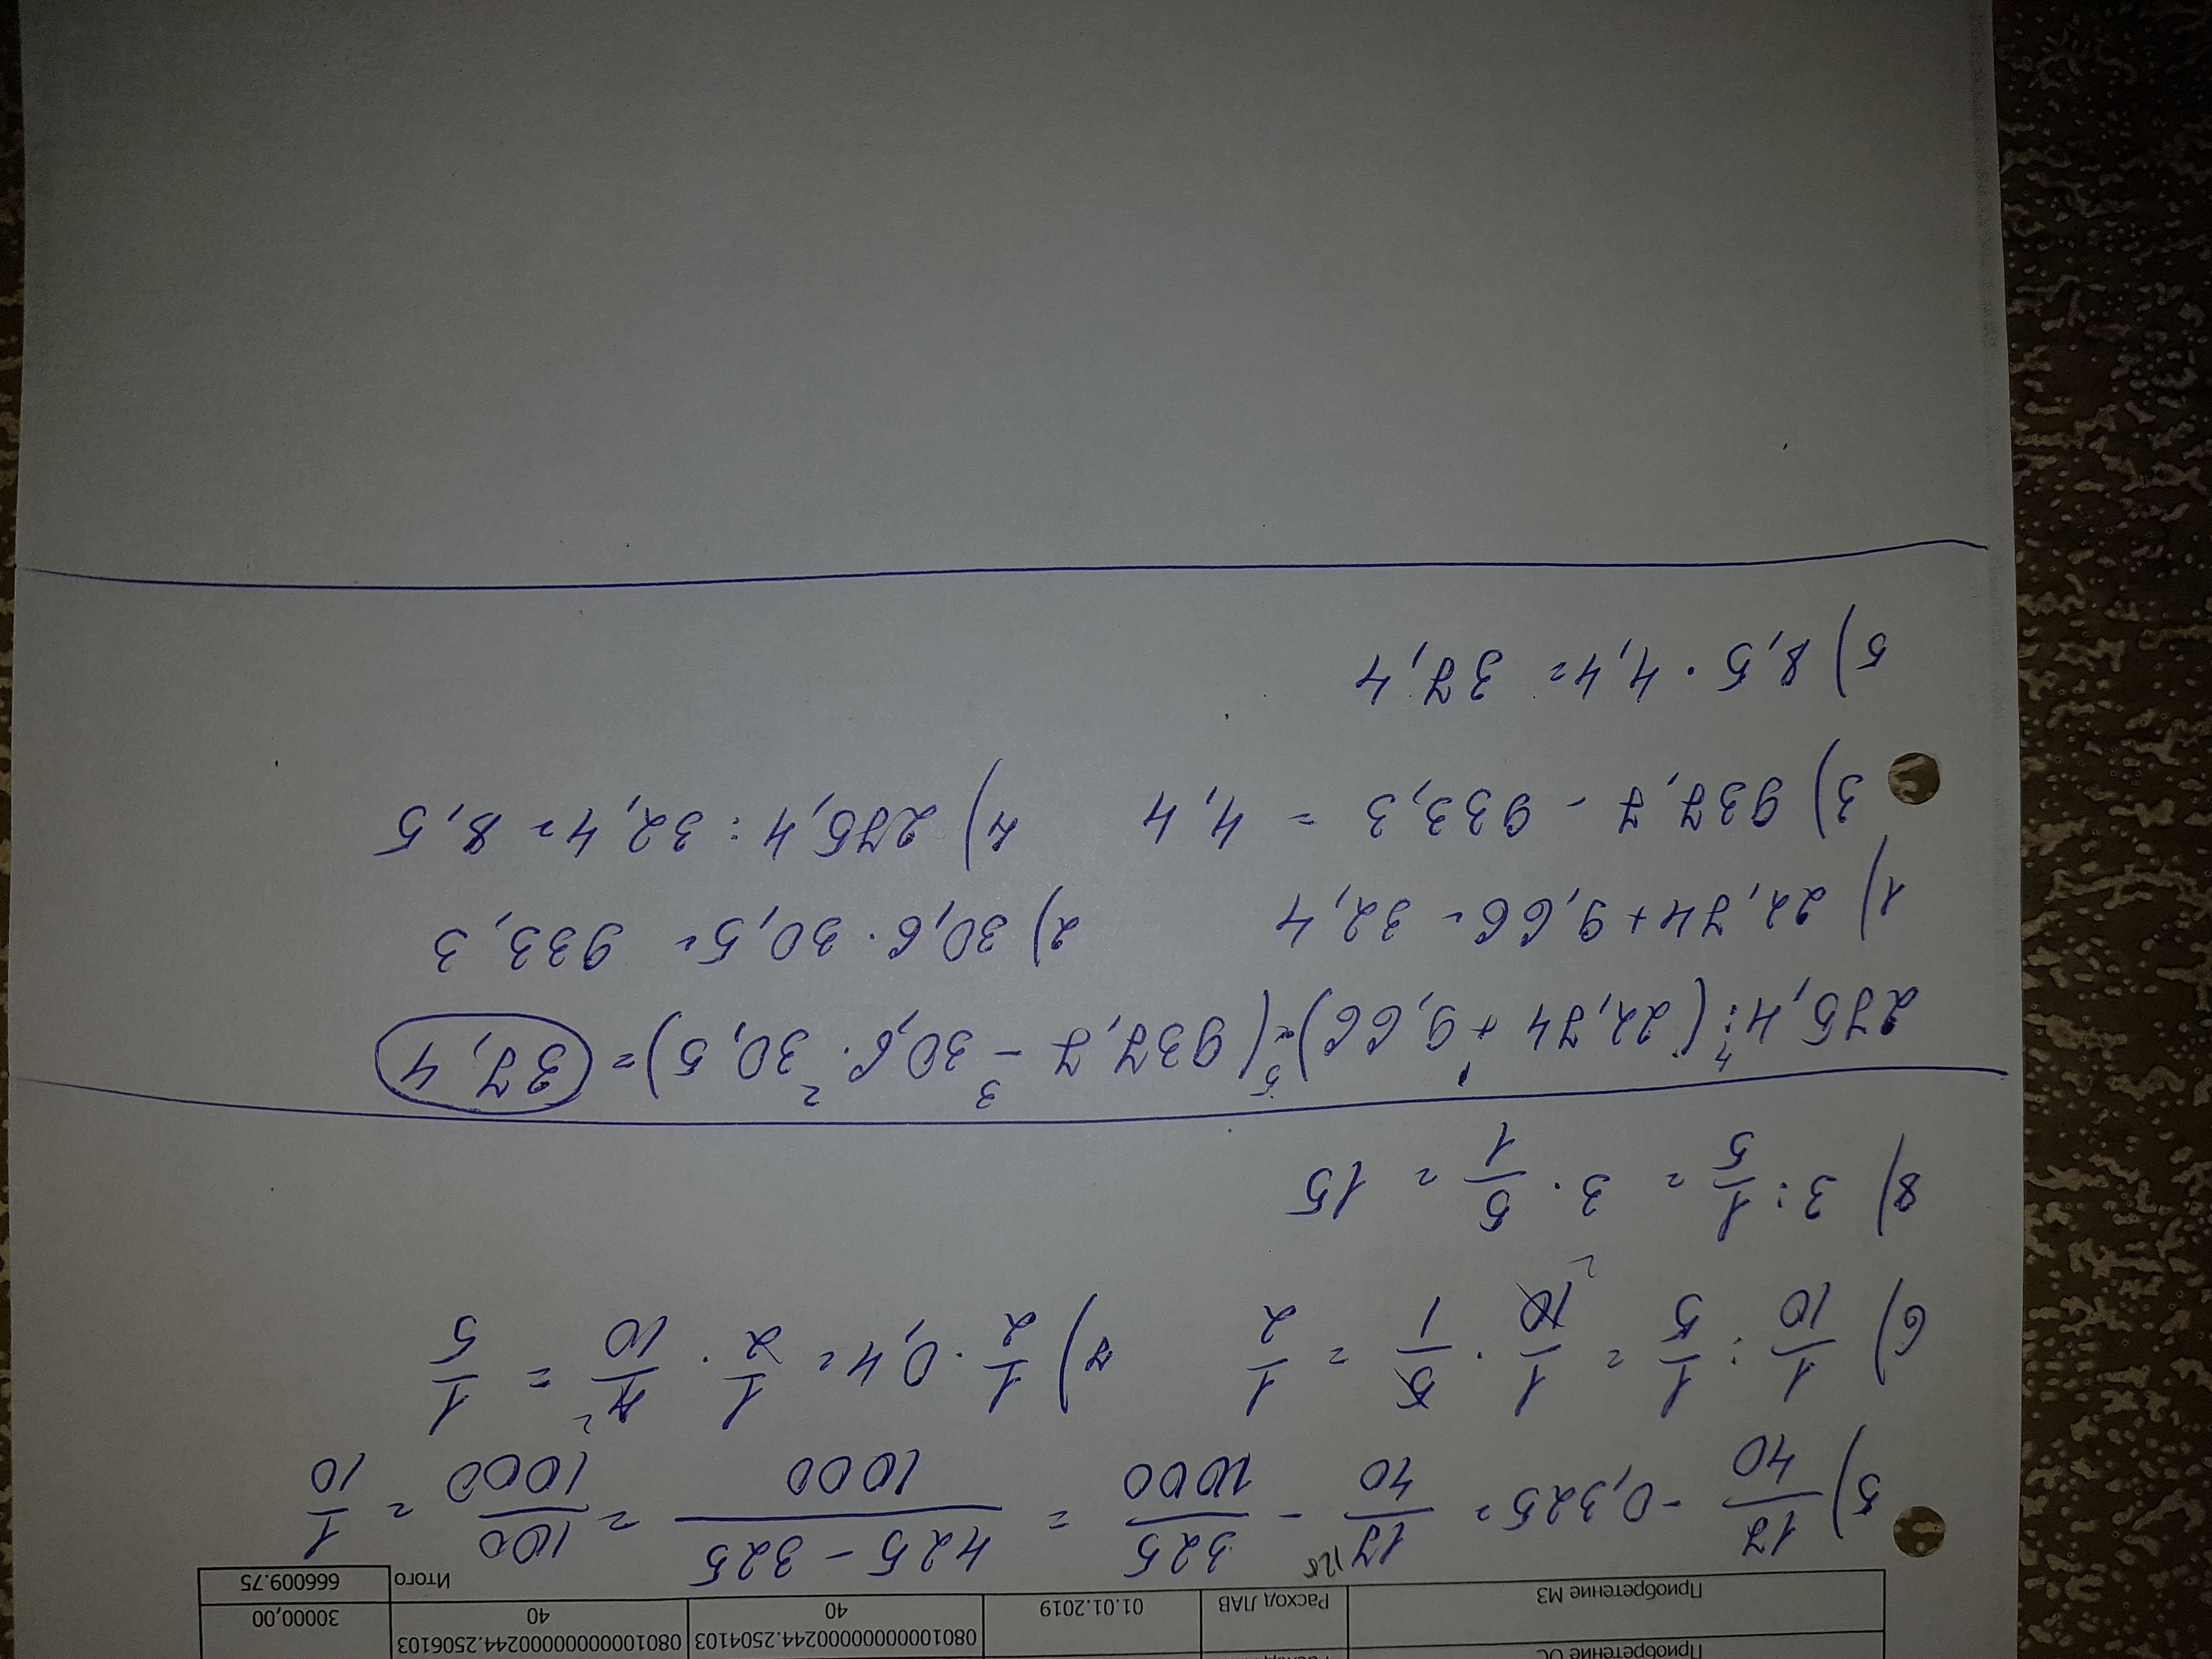 Приобретение ОС
Приобретение МЗ Расход ЛАВ 01.01.2019 08010000000000244.2504103 40 08010000000000244.2506103 40 30000,00
Итого 666009.75
5) 17/40 - 0,325 = 17/40 - 325/1000 = 425 - 325/1000 = 100/1000 = 1/10
6) 1/10 : 1/5 = 1/10 · 5/1 = 1/2 7) 1/2 · 0,4 = 1/2 · 4/10 = 1/5
8) 3 : 1/5 = 3 · 5/1 = 15
275,4 : (22,74 + 9,66) · (937,7 - 30,6 · 30,5) = 37,4
1) 22,74 + 9,66 = 32,4 2) 30,6 · 30,5 = 933,3
3) 937,7 - 933,3 = 4,4 4) 275,4 : 32,4 = 8,5
5) 8,5 · 4,4 = 37,4